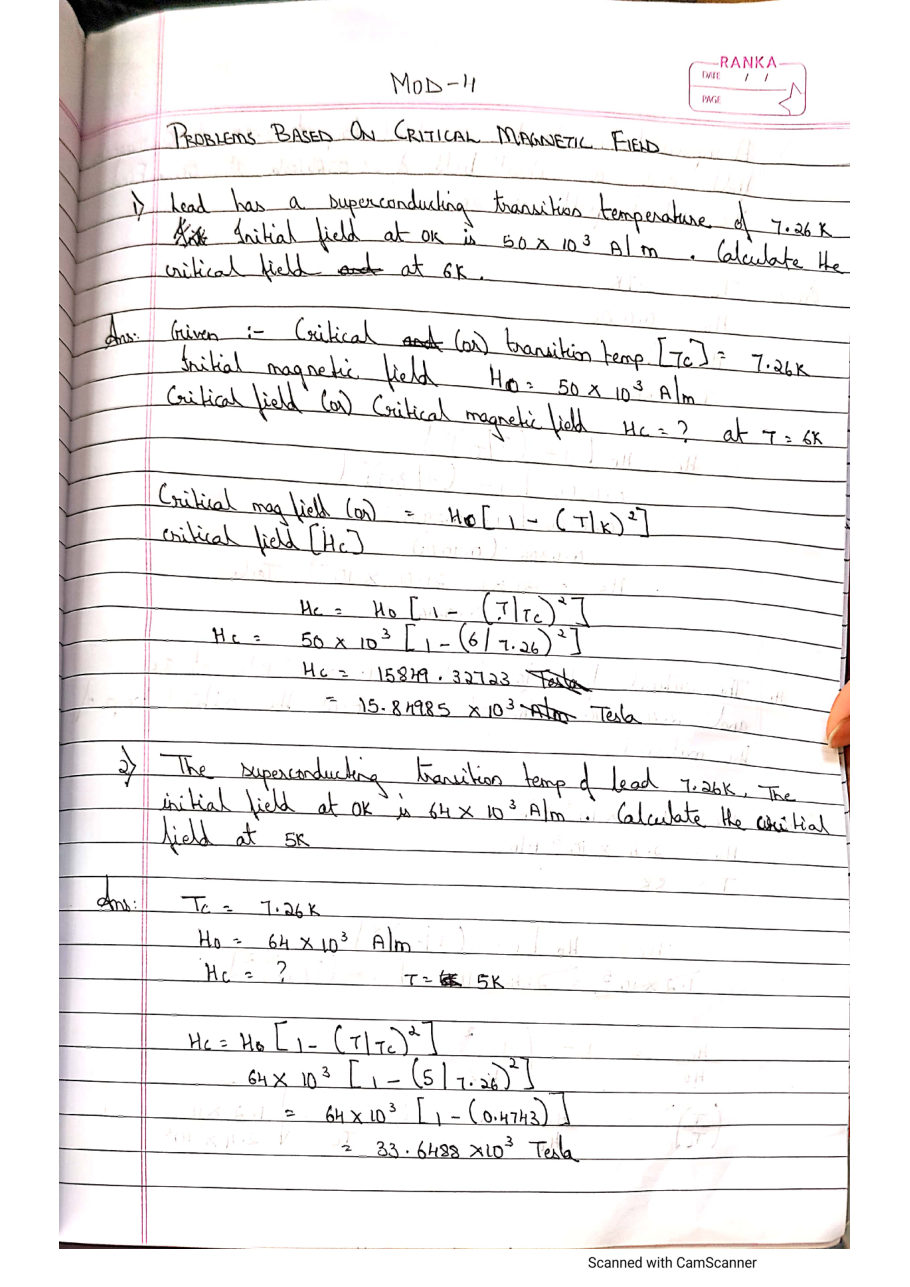 RANKA
DATE / /
PAGE
MOD-4
PROBLEMS BASED ON CRITICAL MAGNETIC FIELD
1) Lead has a superconducting transition temperature of 7.26 K
Initial field at 0K is 50 × 10³ A/m . Calculate the
critical field and at 6K.
Ans: Given :- Critical and (or) transition temp [Tc] = 7.26K
Initial magnetic field H0 = 50 × 10³ A/m
Critical field (or) Critical magnetic field Hc = ? at T = 6K
Critical mag field (or) = H0 [ 1 - (T/K)²]
critical field [Hc]
Hc = H0 [ 1 - (T/Tc)²]
Hc = 50 × 10³ [ 1 - (6/7.26)²]
Hc = 15849.32723 Tesla
= 15.84985 ×10³ A/m Tesla
2) The superconducting transition temp of lead 7.26K. The
initial field at 0K is 64 × 10³ A/m . Calculate the critial
field at 5K
Ans: Tc = 7.26K
H0 = 64 × 10³ A/m
Hc = ? T = 5K
Hc = H0 [1 - (T/Tc)²]
64 × 10³ [ 1 - (5/7.26)²]
= 64 × 10³ [1 - (0.4743)]
= 33.6488 ×10³ Tesla
Scanned with CamScanner